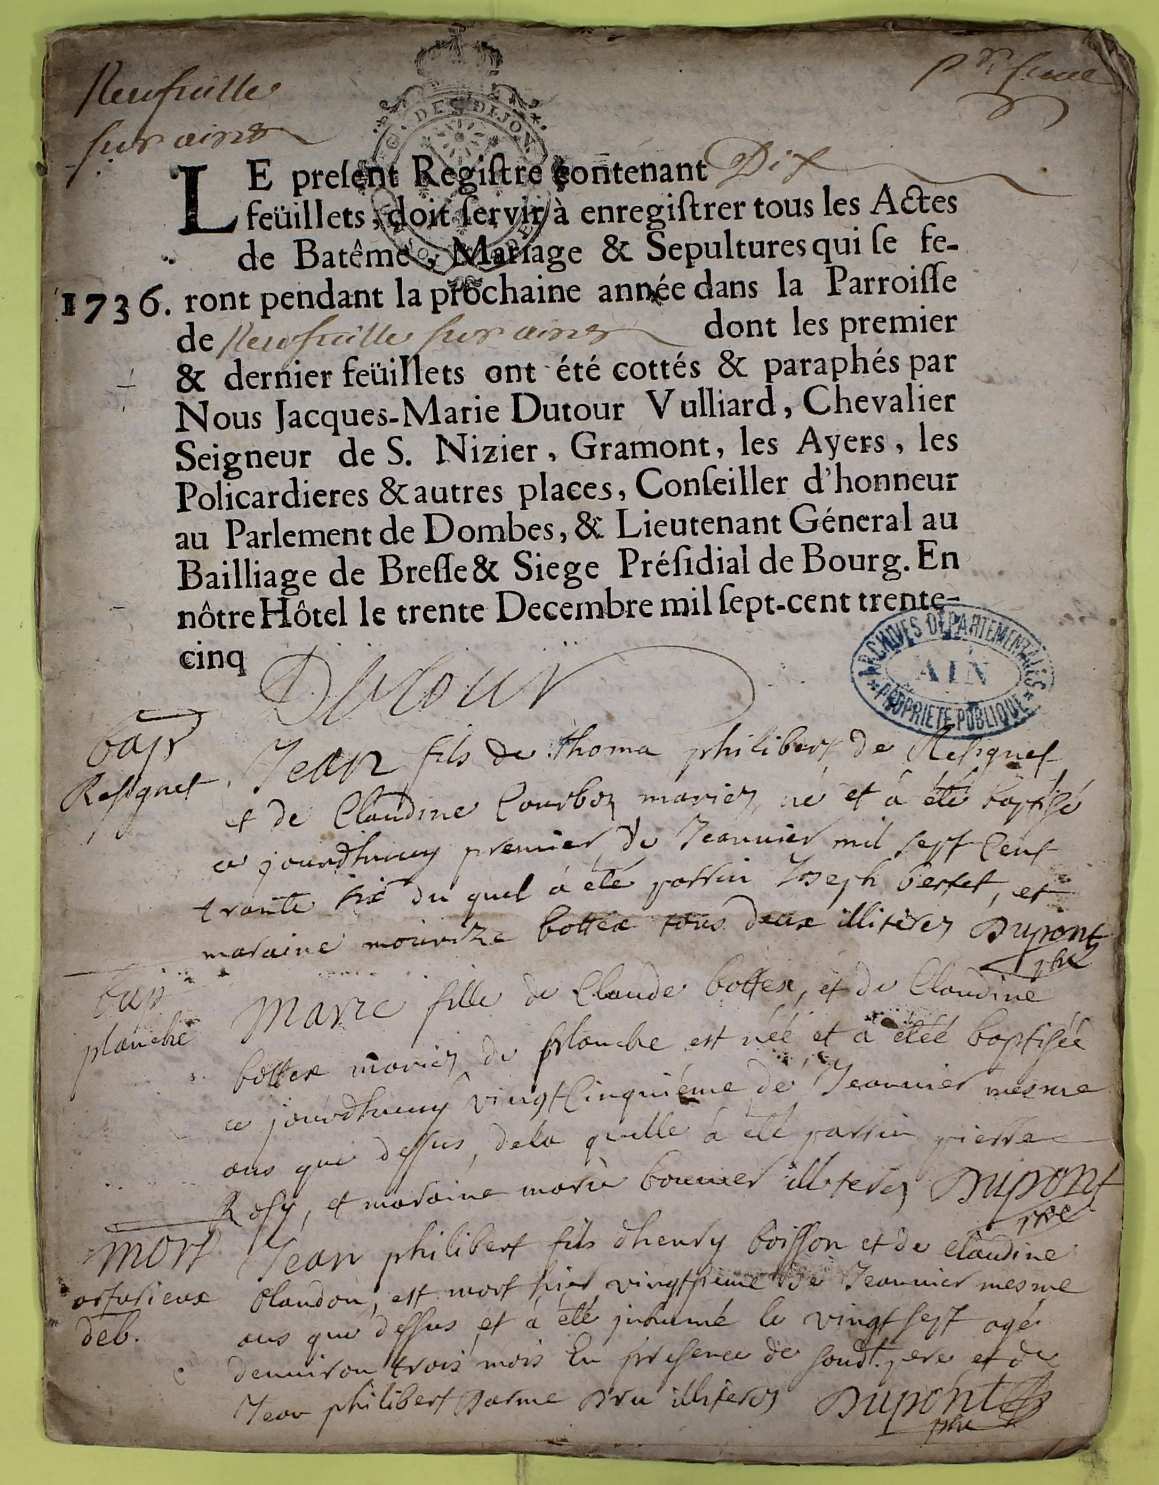 Neufuille
sur ains
G. DE DIJON
LE preſent Regiſtre contenant Dix
feüillets, doit ſervir à enregiſtrer tous les Actes
de Batême, Mariage & Sepultures qui ſe fe-
1736. ront pendant la prochaine année dans la Parroiſſe
de Neufuille sur ains dont les premier
& dernier feüillets ont été cottés & paraphés par
Nous Jacques-Marie Dutour Vulliard, Chevalier
Seigneur de S. Nizier, Gramont, les Ayers, les
Policardieres & autres places, Conſeiller d'honneur
au Parlement de Dombes, & Lieutenant Géneral au
Bailliage de Breſſe & Siege Préſidial de Bourg. En
nôtre Hôtel le trente Decembre mil ſept-cent trente-
cinq
Dutour
ARCHIVES DÉPARTEMENTALES
AIN
PROPRIÉTÉ PUBLIQUE
bapt
Resignet
Jean fils de thoma philibert de Resignet
et de Claudine Courbon mariez, né et a été baptisé
ce jourdhuuy premier de Jeannier mil sept Cent
trante six du quel a été parrin Joseph et
maraine bottex tous deux illiterez Dupont
pbre
bap
planche
Marie fille de Claude bottex, et de Claudine
bottex mariez de planche est néé et a étéé baptiséé
ce jourdhuuy vingt Cinquiéme de Jeannier mesme
ans que dessus, dela quelle a été parrin pierre
Rosy, et maraine marie bouuier illiterez Dupont
pbre
mort
deb.
Jean philibert fils dhenry boisson et de claudine
Blandon, est mort hier vingtsieme de Jeannier mesme
ans que dessus et a été inhumé le vingt sept agé
denuiron trois mois En presence de soudt. pere et de
Jean philibert illiterez Dupont
pbre